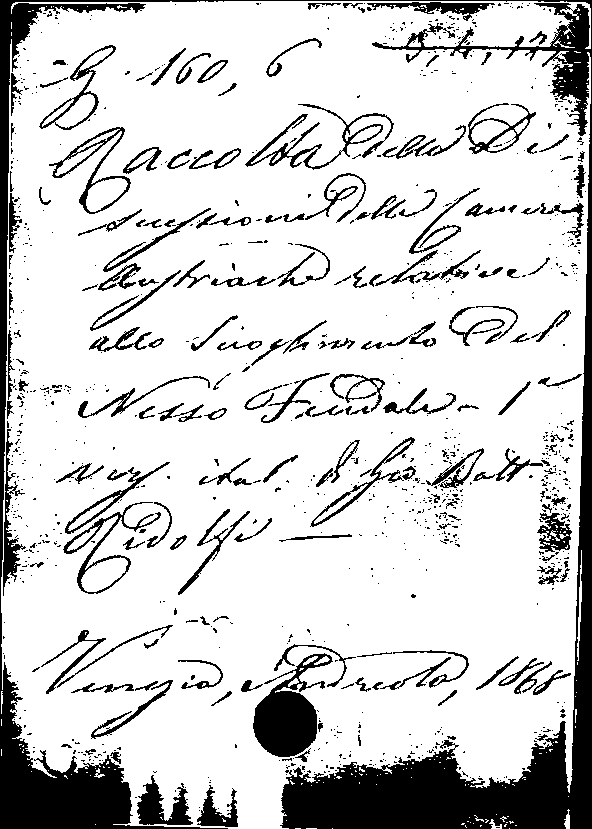 G. 160, 6
Raccolta delle Di-
scussioni delle Camere
Austriache relative
allo scioglimento del
Nesso Feudale - 1ª
ver. ital. di Gio. Batt.
Ridolfi —
Venezia, Andreola, 1868